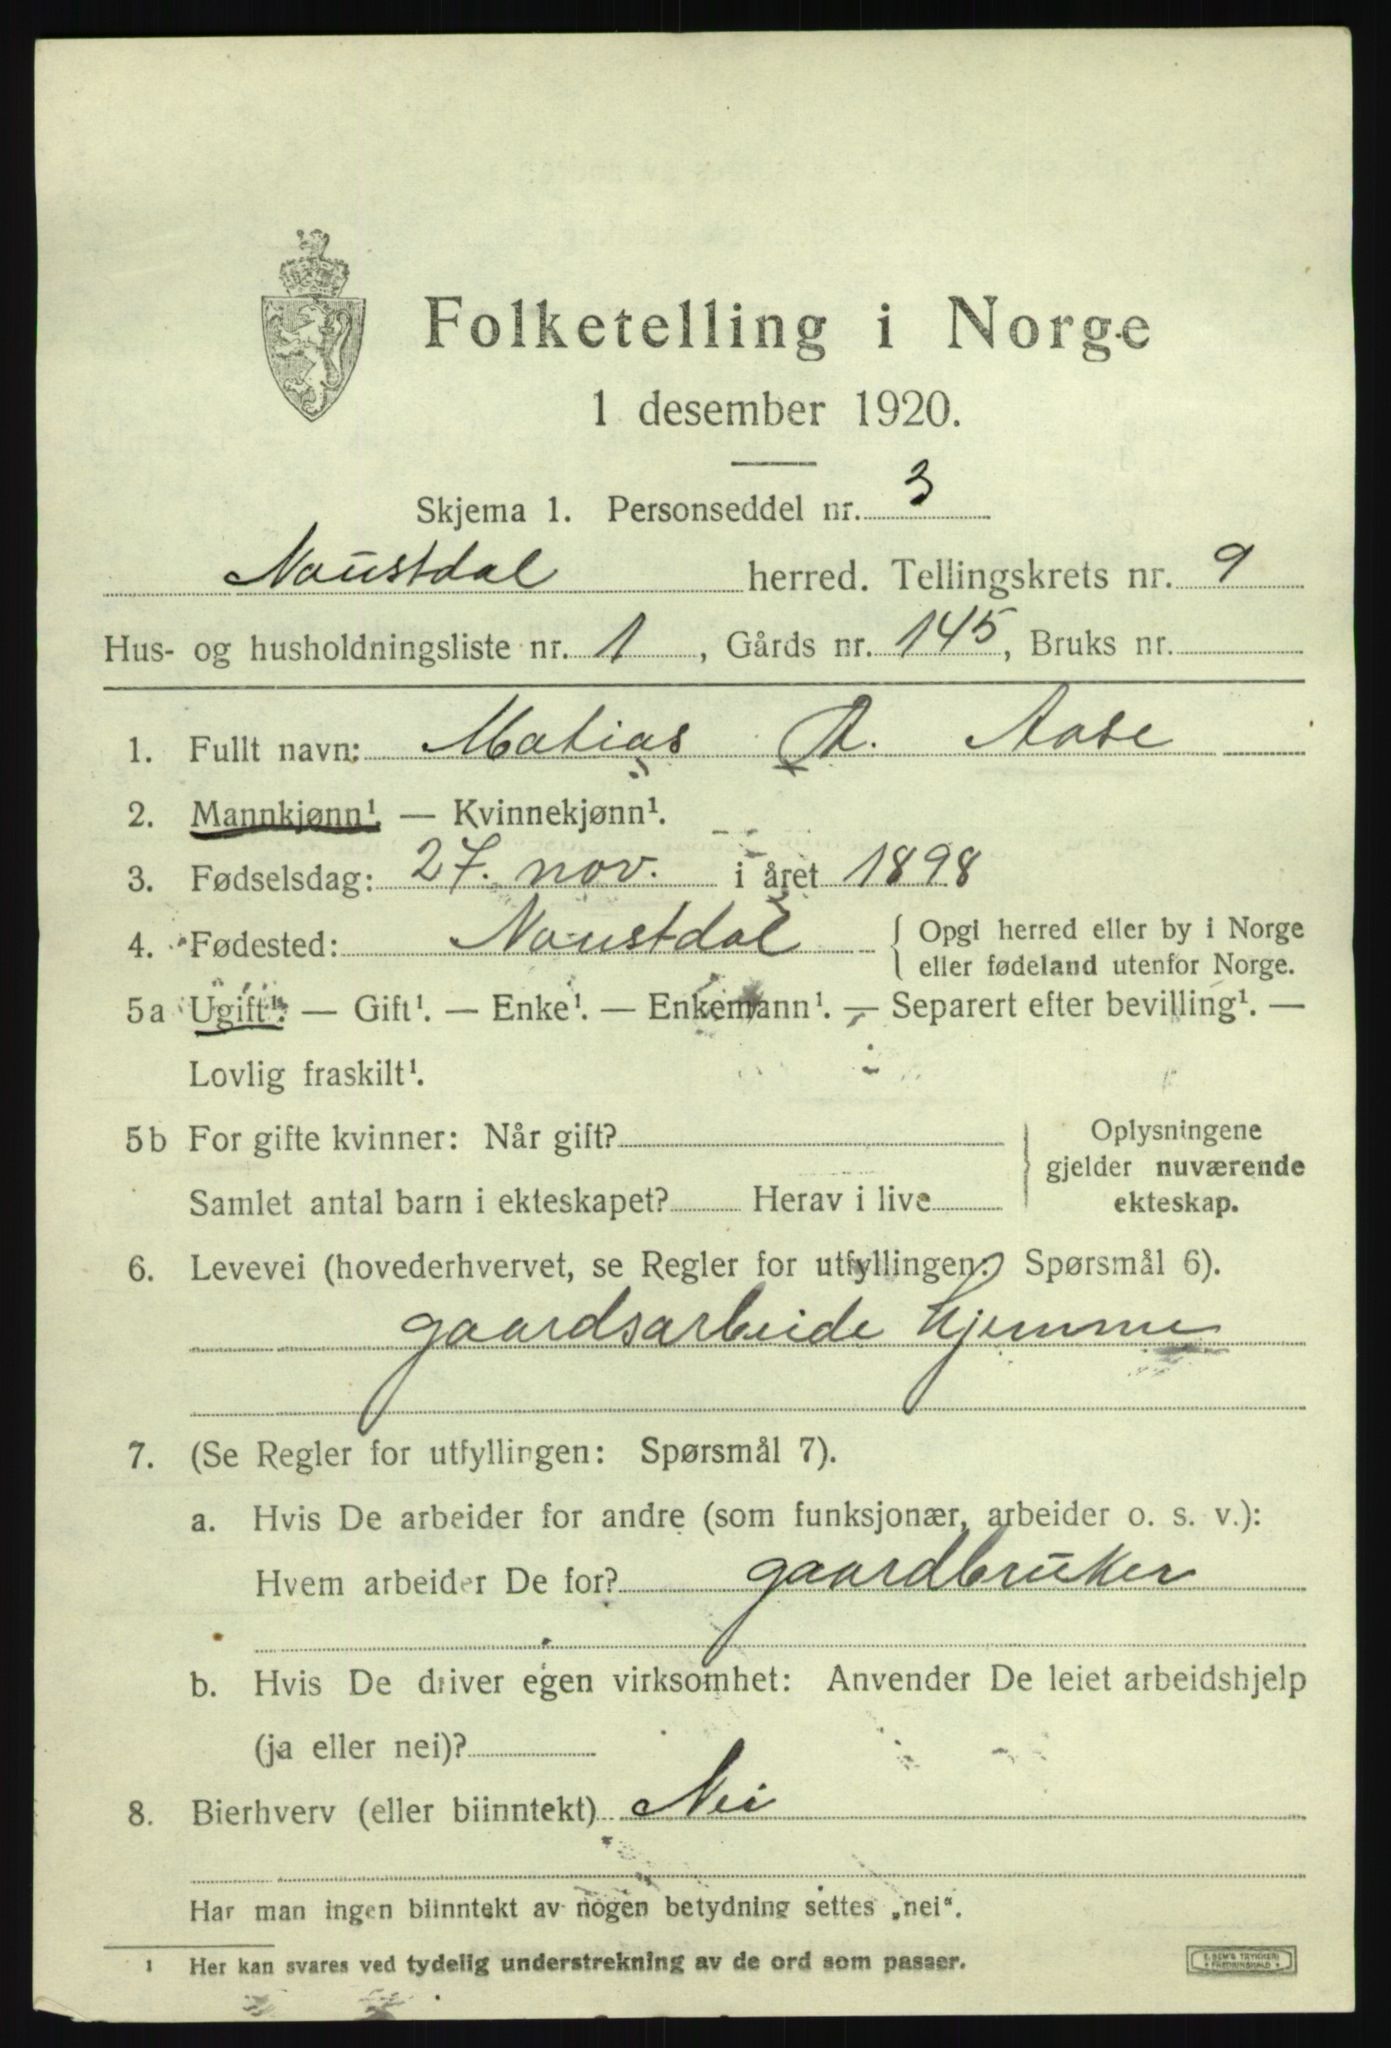 Folketelling i Norge
1 desember 1920.
Skjema 1. Personseddel nr. 3
Naustdal herred. Tellingskrets nr. 9
Hus- og husholdningsliste nr. 1, Gårds nr. 145, Bruks nr.
1. Fullt navn: Matias A. Aase
2. Mannkjønn¹. — Kvinnekjønn¹.
3. Fødselsdag: 27. nov. i året 1898
4. Fødested: Naustdal { Opgi herred eller by i Norge
eller fødeland utenfor Norge.
5a Ugift¹. — Gift¹. — Enke¹. — Enkemann¹. — Separert efter bevilling¹. —
Lovlig fraskilt¹.
5b For gifte kvinner: Når gift? } Oplysningene
gjelder nuværende
Samlet antal barn i ekteskapet? Herav i live ekteskap.
6. Levevei (hovederhvervet, se Regler for utfyllingen: Spørsmål 6).
gaardsarbeide hjemme
7. (Se Regler for utfyllingen: Spørsmål 7).
a. Hvis De arbeider for andre (som funksjonær, arbeider o. s. v.):
Hvem arbeider De for? gaardbruker
b. Hvis De driver egen virksomhet: Anvender De leiet arbeidshjelp
(ja eller nei)?
8. Bierhverv (eller biinntekt) Nei
Har man ingen biinntekt av nogen betydning settes „nei“.
¹ Her kan svares ved tydelig understrekning av de ord som passer.
E. SEM'S TRYKKERI
* FREDRIKSHALD *